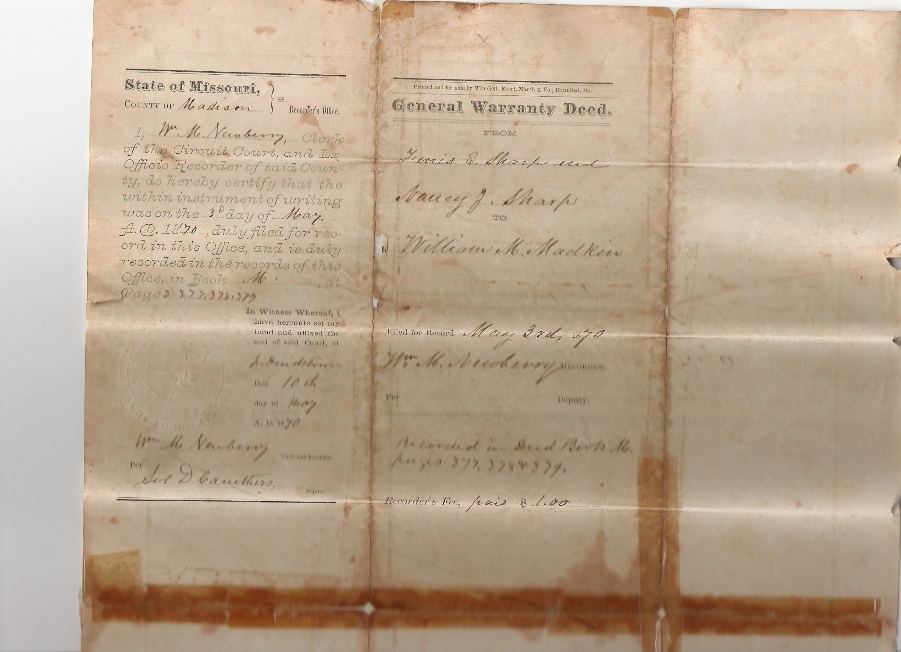 State of Missouri,
COUNTY OF Madison } ss. Recorder's Office.
I, Wm M. Newberry, Clerk
of the Circuit Court, and Ex
Officio Recorder of said Coun-
ty, do hereby certify that the
within instrument of writing
was on the 3d day of May
A.D. 1870, duly filed for rec-
ord in this Office, and is duly
recorded in the records of this
Office, in Book M. , at
Pages 377,378,379
In Witness Whereof, I
have hereunto set my
hand and affixed the
seal of said Court, at
this 10th
day of May
A. D. 1870
Wm M. Newberry
Clerk and Recorder
Per Sol D Caruthers,
Deputy.
Printed and for sale by Winchell, Ebert, Marsh & Co., Hannibal, Mo.
General Warranty Deed.
FROM
E. Sharp and
Nancy J. Sharp
TO
William M. Madkin
Filed for Record May 3rd, 1870
Wm M. Newberry RECORDER.
Per Deputy.
Recorded in Deed Book M.
pages 377, 378 & 379.
Recorder's Fee, paid $1.00